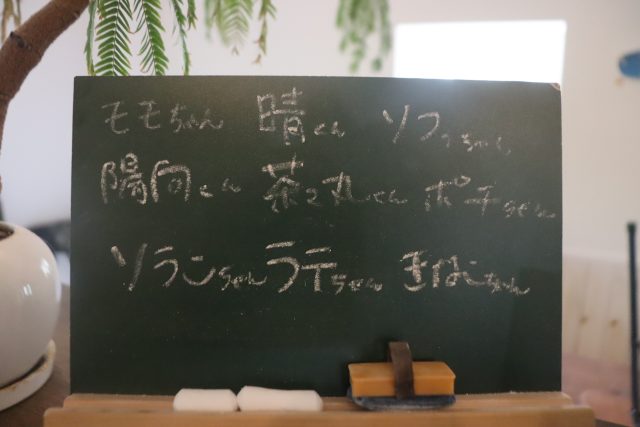 モモちゃん 晴くん ソフィちゃん
陽向くん 茶々丸くん ポチくん
ソランちゃん ラテちゃん きなこちゃん